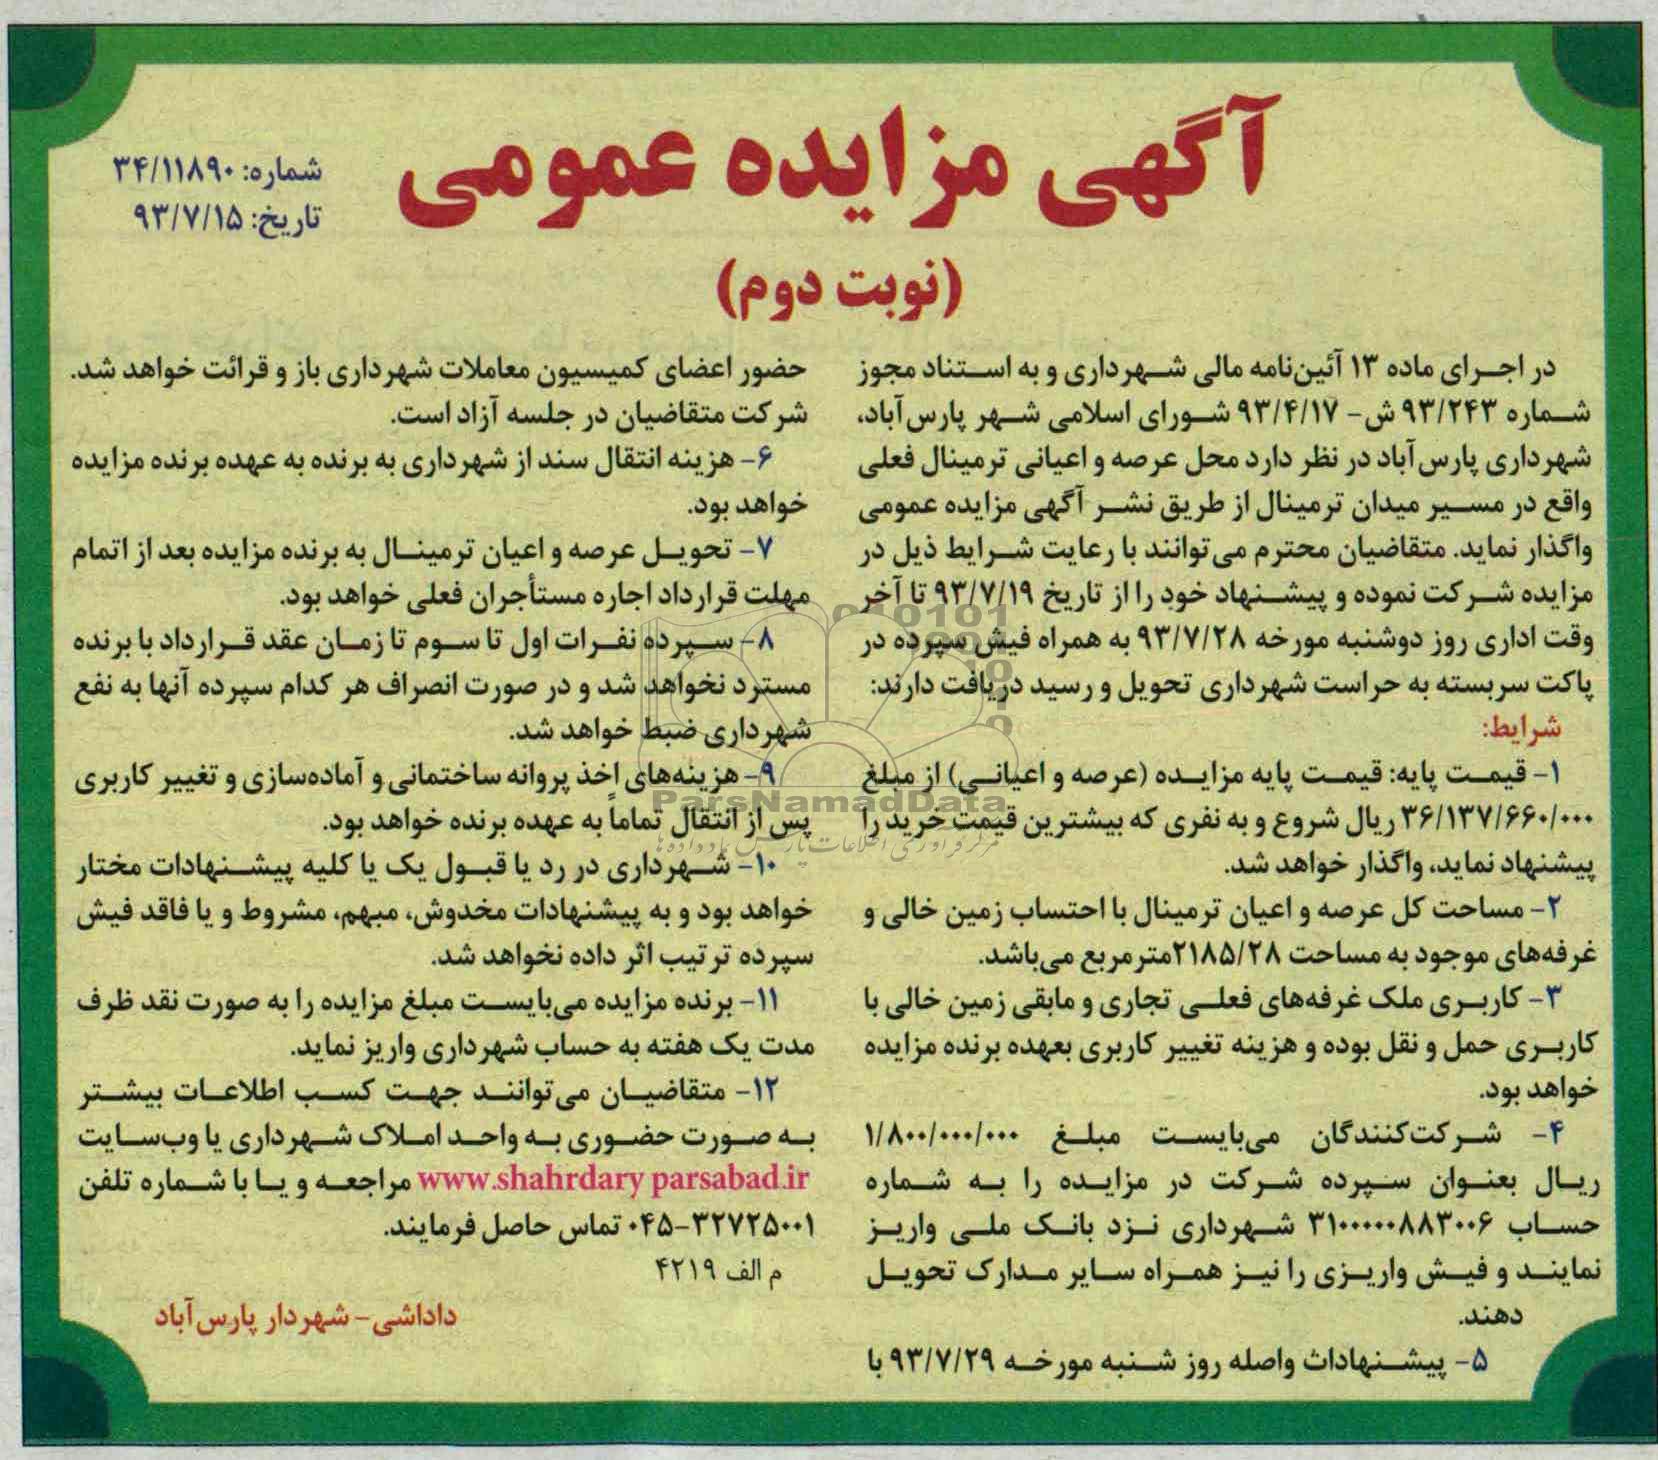 آگهی مزایده عمومی
شماره: ۳۴/۱۱۸۹۰
تاریخ: ۹۳/۷/۱۵
(نوبت دوم)
در اجرای ماده ۱۳ آئین‌نامه مالی شهرداری و به استناد مجوز
شماره ۹۳/۲۴۳ ش- ۹۳/۴/۱۷ شورای اسلامی شهر پارس‌آباد،
شهرداری پارس‌آباد در نظر دارد محل عرصه و اعیانی ترمینال فعلی
واقع در مسیر میدان ترمینال از طریق نشر آگهی مزایده عمومی
واگذار نماید. متقاضیان محترم می‌توانند با رعایت شرایط ذیل در
مزایده شرکت نموده و پیشنهاد خود را از تاریخ ۹۳/۷/۱۹ تا آخر
وقت اداری روز دوشنبه مورخه ۹۳/۷/۲۸ به همراه فیش سپرده در
پاکت سربسته به حراست شهرداری تحویل و رسید دریافت دارند:
شرایط:
۱- قیمت پایه: قیمت پایه مزایده (عرصه و اعیانی) از مبلغ
۳۶/۱۳۷/۶۶۰/۰۰۰ ریال شروع و به نفری که بیشترین قیمت خرید را
پیشنهاد نماید، واگذار خواهد شد.
۲- مساحت کل عرصه و اعیان ترمینال با احتساب زمین خالی و
غرفه‌های موجود به مساحت ۲۱۸۵/۲۸مترمربع می‌باشد.
۳- کاربری ملک غرفه‌های فعلی تجاری و مابقی زمین خالی با
کاربری حمل و نقل بوده و هزینه تغییر کاربری بعهده برنده مزایده
خواهد بود.
۴- شرکت‌کنندگان می‌بایست مبلغ ۱/۸۰۰/۰۰۰/۰۰۰
ریال بعنوان سپرده شرکت در مزایده را به شماره
حساب ۳۱۰۰۰۰۰۸۸۳۰۰۶ شهرداری نزد بانک ملی واریز
نمایند و فیش واریزی را نیز همراه سایر مدارک تحویل
دهند.
۵- پیشنهادات واصله روز شنبه مورخه ۹۳/۷/۲۹ با
حضور اعضای کمیسیون معاملات شهرداری باز و قرائت خواهد شد.
شرکت متقاضیان در جلسه آزاد است.
۶- هزینه انتقال سند از شهرداری به برنده به عهده برنده مزایده
خواهد بود.
۷- تحویل عرصه و اعیان ترمینال به برنده مزایده بعد از اتمام
مهلت قرارداد اجاره مستأجران فعلی خواهد بود.
۸- سپرده نفرات اول تا سوم تا زمان عقد قرارداد با برنده
مسترد نخواهد شد و در صورت انصراف هر کدام سپرده آنها به نفع
شهرداری ضبط خواهد شد.
۹- هزینه‌های اخذ پروانه ساختمانی و آماده‌سازی و تغییر کاربری
پس از انتقال تماماً به عهده برنده خواهد بود.
۱۰- شهرداری در رد یا قبول یک یا کلیه پیشنهادات مختار
خواهد بود و به پیشنهادات مخدوش، مبهم، مشروط و یا فاقد فیش
سپرده ترتیب اثر داده نخواهد شد.
۱۱- برنده مزایده می‌بایست مبلغ مزایده را به صورت نقد ظرف
مدت یک هفته به حساب شهرداری واریز نماید.
۱۲- متقاضیان می‌توانند جهت کسب اطلاعات بیشتر
به صورت حضوری به واحد املاک شهرداری یا وب‌سایت
www.shahrdary parsabad.ir مراجعه و یا با شماره تلفن
۰۴۵-۳۲۷۲۵۰۰۱ تماس حاصل فرمایند.
م الف ۴۲۱۹
داداشی- شهردار پارس‌آباد
ParsNamadData